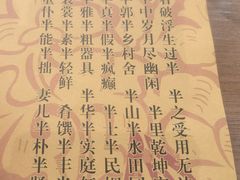 破浮生过半 半之受用无
中岁月尽幽闲 半里乾坤
半郭半乡村舍 半山半水田
半真半假疯癫 半士半民姻
半雅半粗器具 半华半实庭
裳半素半轻鲜 肴馔半丰
仆半能半拙 妻儿半朴半